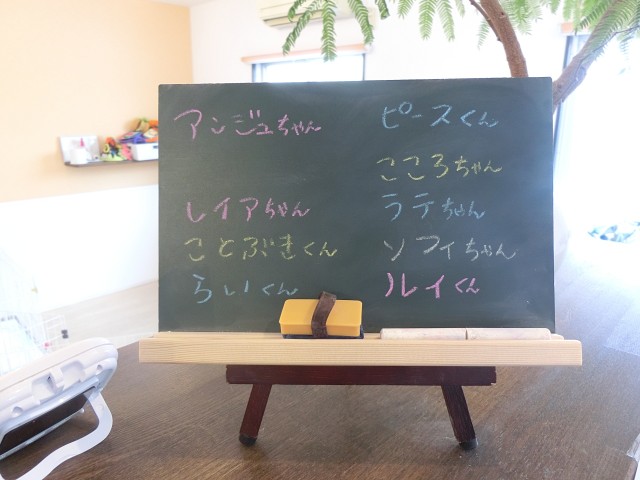 アンジュちゃん
レイアちゃん
ことぶきくん
らいくん
ピースくん
こころちゃん
ラテちゃん
ソフィちゃん
ルイくん